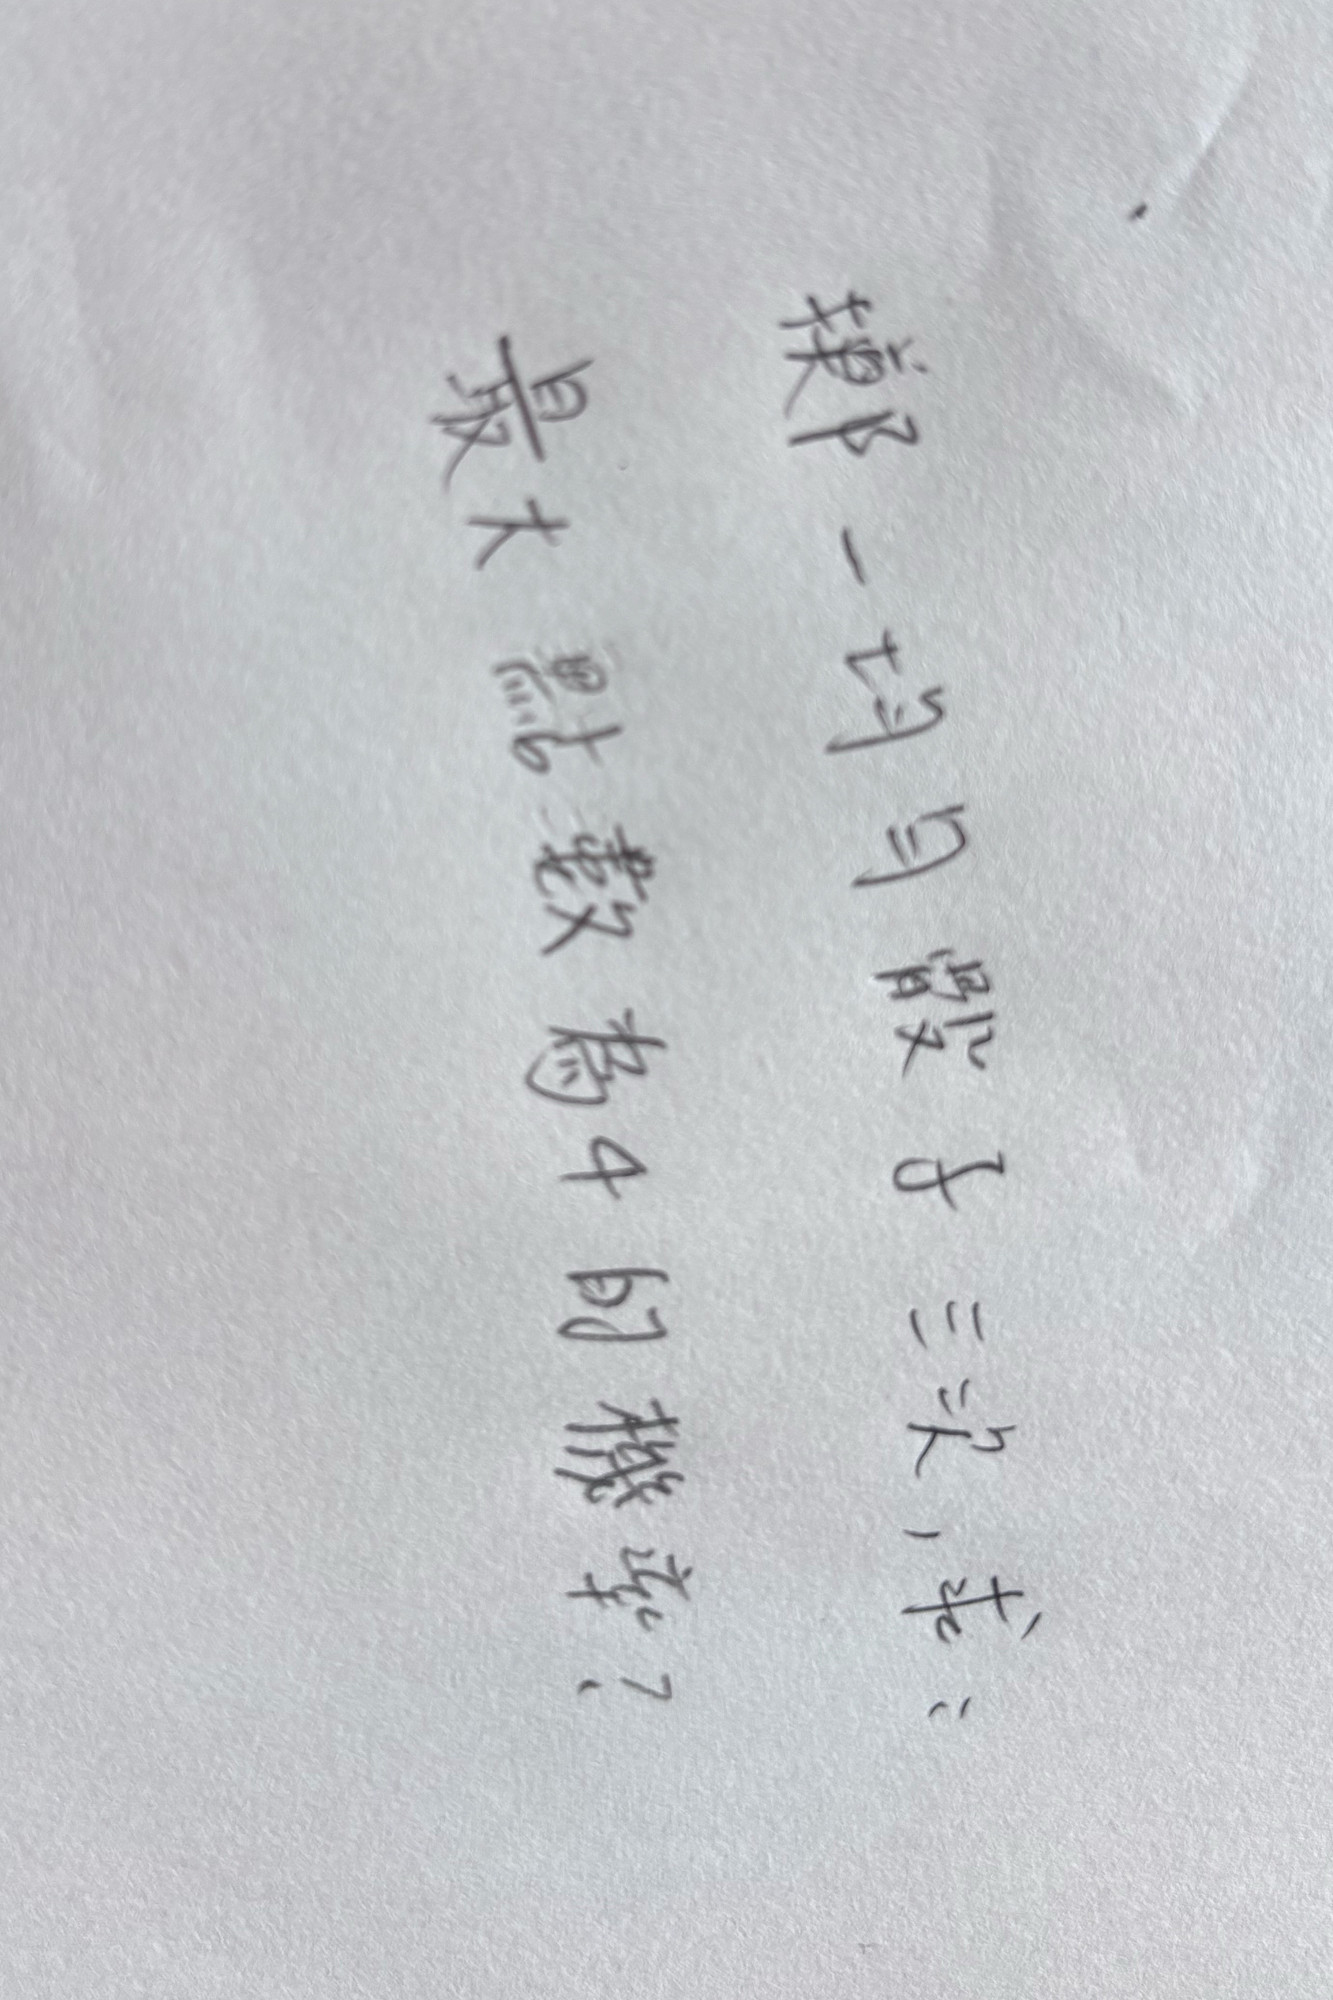 擲一均勻骰子三次，求：
最大點數為4的機率？